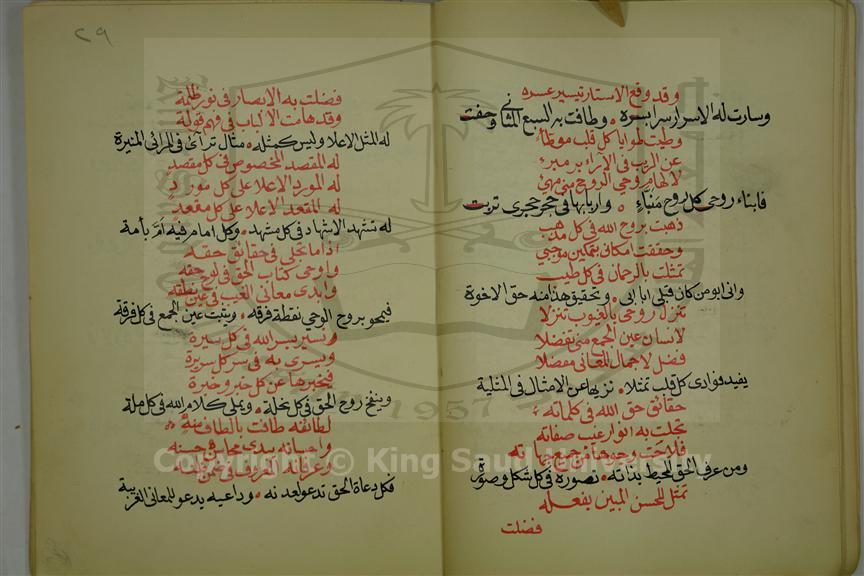 وقد وقع الاستار تيسير عسره
وسارت له الاسرار سرا بسره وطافت به السبع المثاني وحفت
وطيت طوايا كل قلب موطأ
عن الريب في الآراء بر مبرء
لالهام روحي الروح مني مهيء
فابناء روحي كل روح منباء واربابها في حجر حجري تربت
ذهبت بروح الله في كل مذهب
وحققت امكاني بتمكين موجبي
تمثلت بالرحمان في كل طيب
واني ابو من كان قبلي ابا ابي وتحقيق هذا منه حق الاخوة
تنزل روحي بالغيوب تنزلا
لانسان عين الجمع مني تفضلا
فضل لاجمال المعاني مفصلا
يفيد فوادى كل قلب تمثلا نزيها عن الامثال في المثلية
حقائق حق الله في كلماته
تجلت به انوار غيب صفاته
فلاحت وجوها من جميع جهاته
ومن عرف الحق المحيط بذاته تصوره في كل شكل وصورة
تمثل للحسن المبين بفعله
فضلت
٢٩
فضلت به الابصار في نور ظلمة
وقد هامت الالباب في فهم قوله
له المثل الاعلا وليس كمثله مثال تراءى في المرائي المنيرة
له المقصد المخصوص في كل مقصد
له المورد الاعلا على كل مورد
له المقعد الاعلا على كل مقعد
له تشهد الاشهاد في كل مشهد وكل امام فيه ام بأمة
اذا ما تجلى في حقائق حقه
واوحى كتاب الحق في لوح حقه
وابدى معاني الغيب في عين نطقه
فيمحو بروح الوحي نقطة فرقه ويثبت عين الجمع في كل فرقة
ونسير بسر الله في كل سيرة
ويسري به في سر كل سريرة
فيخبرها عن كل خبر وخبرة
وينفخ روح الحق في كل نحلة ويملي كلام الله في كل ملة
لطائفه طافت بالطاف منه
واحسانه يبدي محاسن حسنه
وعرفانه العرف في
فكل دعاة الحق تدعو لعدنه وداعيه يدعو للمعاني الغريبة
1957
Copyright © King Saud University